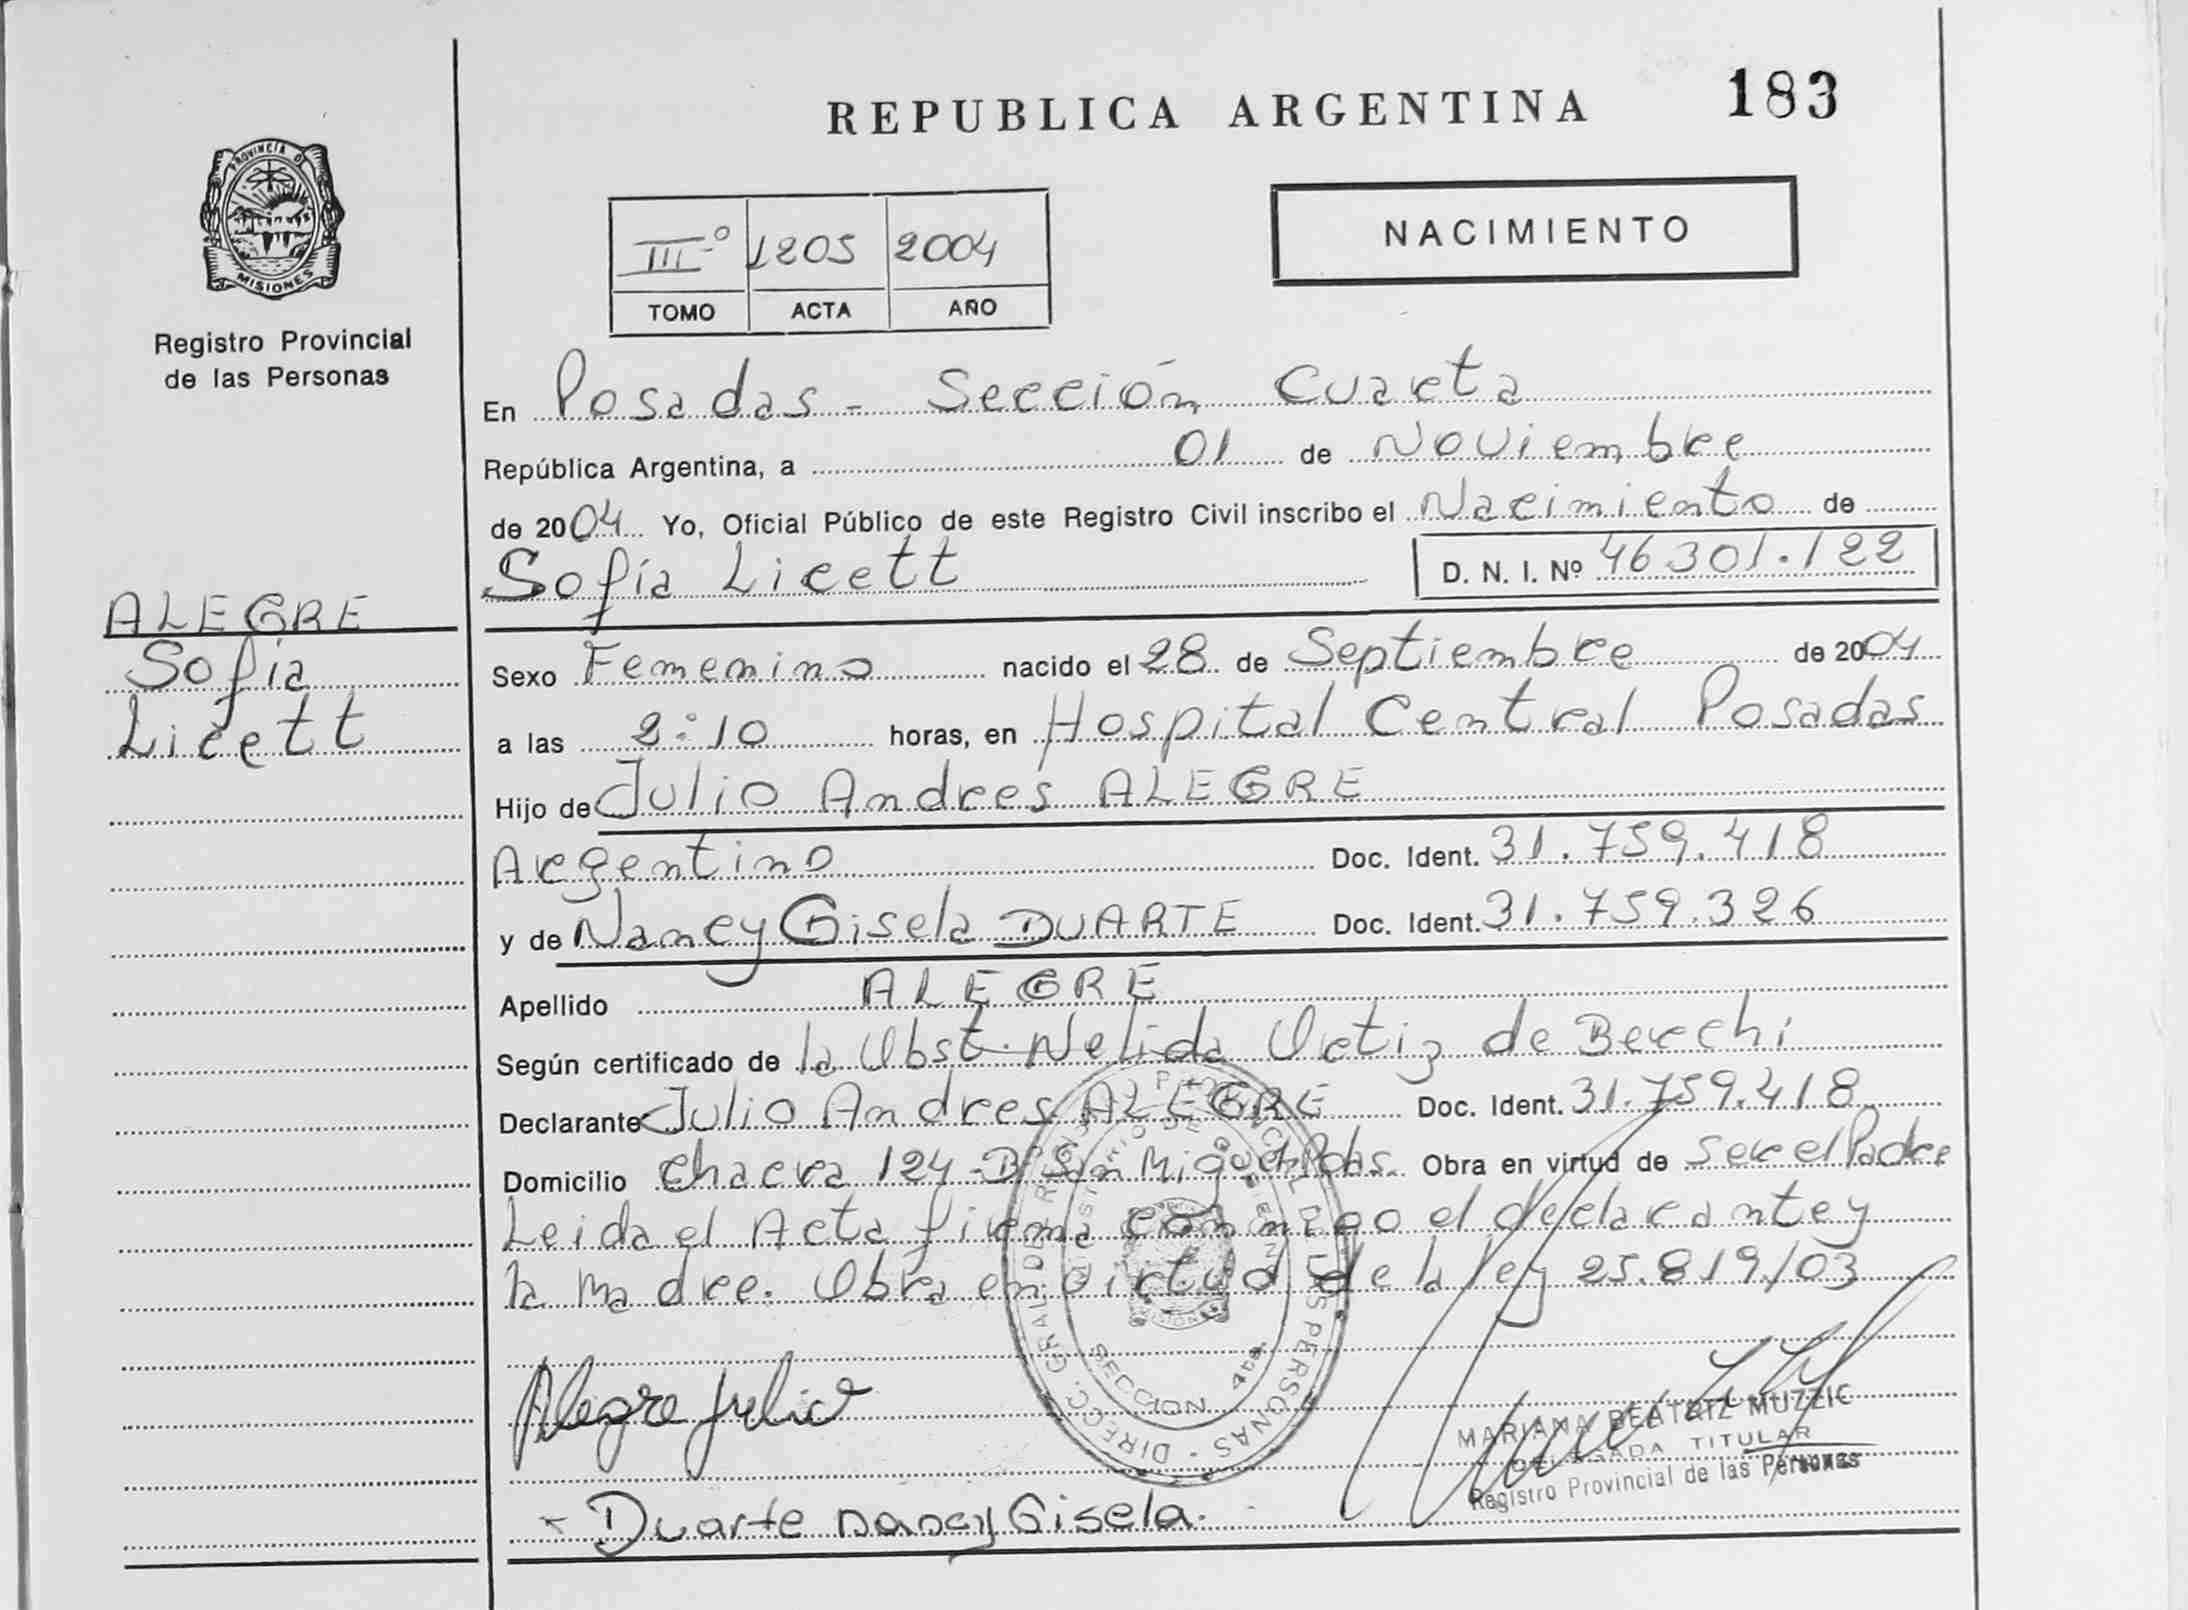 REPUBLICA ARGENTINA
183
PROVINCIA D
MISIONES
Registro Provincial
de las Personas
NACIMIENTO
III º 1205 2004
TOMO ACTA AÑO
En Posadas - Sección Cuarta
República Argentina, a 01 de Noviembre
de 2004 Yo, Oficial Público de este Registro Civil inscribo el Nacimiento de
Sofía Licett D. N. I. Nº 46301.122
ALEGRE
Sofía
Licett
Sexo Femenino nacido el 28 de Septiembre de 2004
a las 2:10 horas, en Hospital Central Posadas
Hijo de Julio Andres ALEGRE
Argentino Doc. Ident. 31.759.418
y de Nancy Gisela DUARTE Doc. Ident. 31.759.326
Apellido ALEGRE
Según certificado de la Obst. Nelida Ortiz de Berchi
Declarante Julio Andres ALEGRE Doc. Ident. 31.759.418
Domicilio Chacra 124-B San Miguel Pdas. Obra en virtud de ser el Padre
Leida el Acta firma conmigo el declarante y
la madre. Obra en virtud de la ley 25.819/03
DIRECC. GRAL. DEL PROVINCIAL DE LAS PERSONAS
SECCION 4ta.
Alegre Julio
MARIANA BEATRIZ MUZZIC
DELEGADA TITULAR
Registro Provincial de las Personas
- Duarte Nancy Gisela.